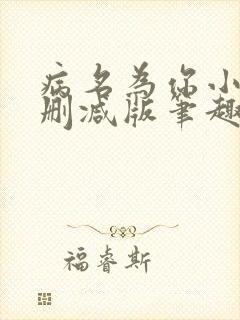 病名为你小
删减版笔趣
福睿斯